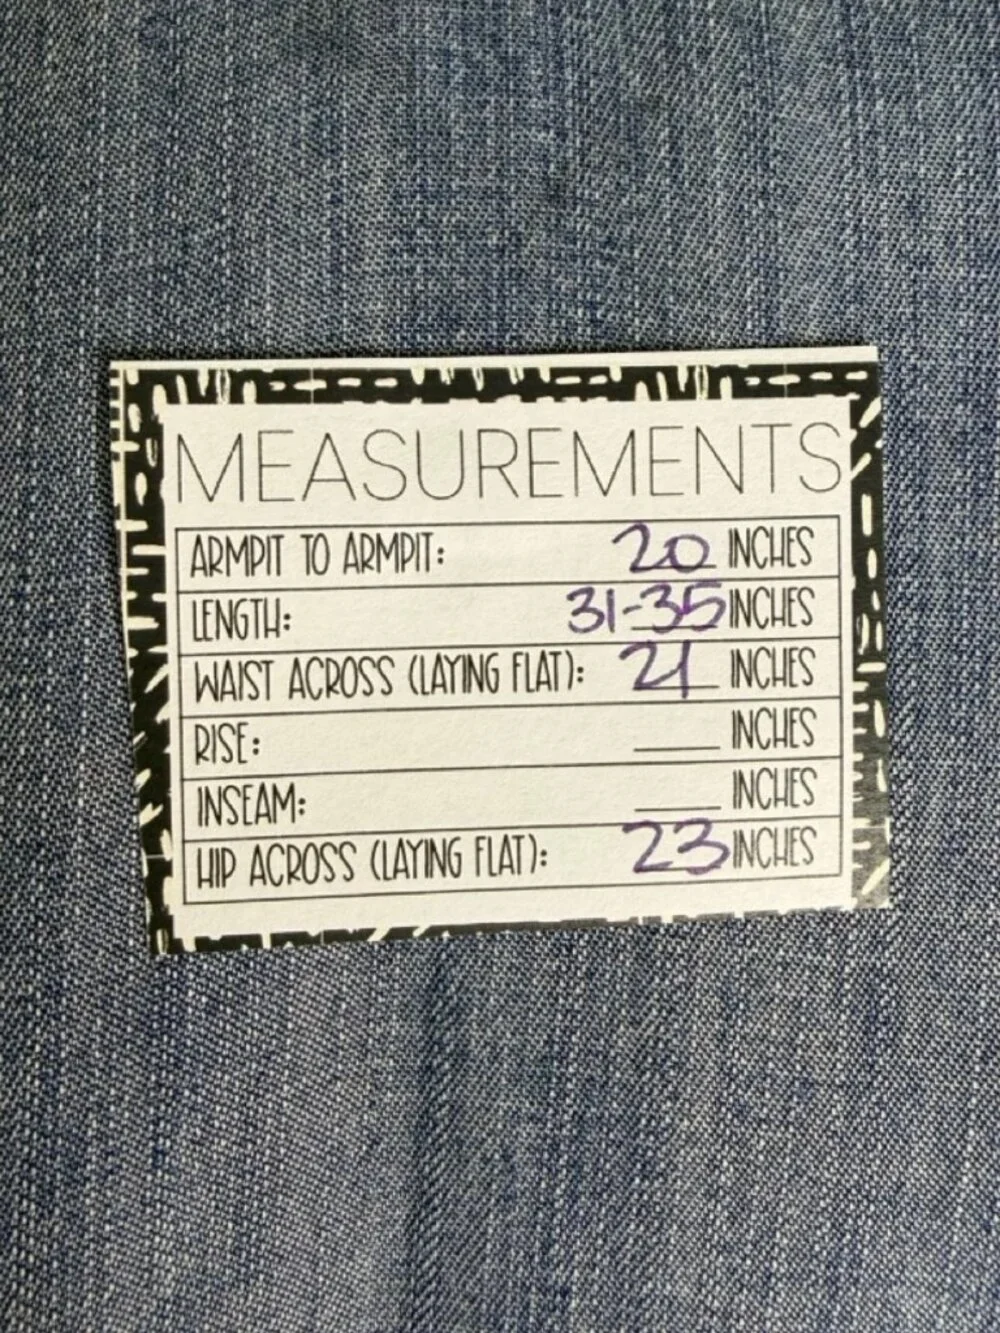 MEASUREMENTS
ARMPIT TO ARMPIT: 20 INCHES
LENGTH: 31-35 INCHES
WAIST ACROSS (LAYING FLAT): 21 INCHES
RISE: ___ INCHES
INSEAM: ___ INCHES
HIP ACROSS (LAYING FLAT): 23 INCHES